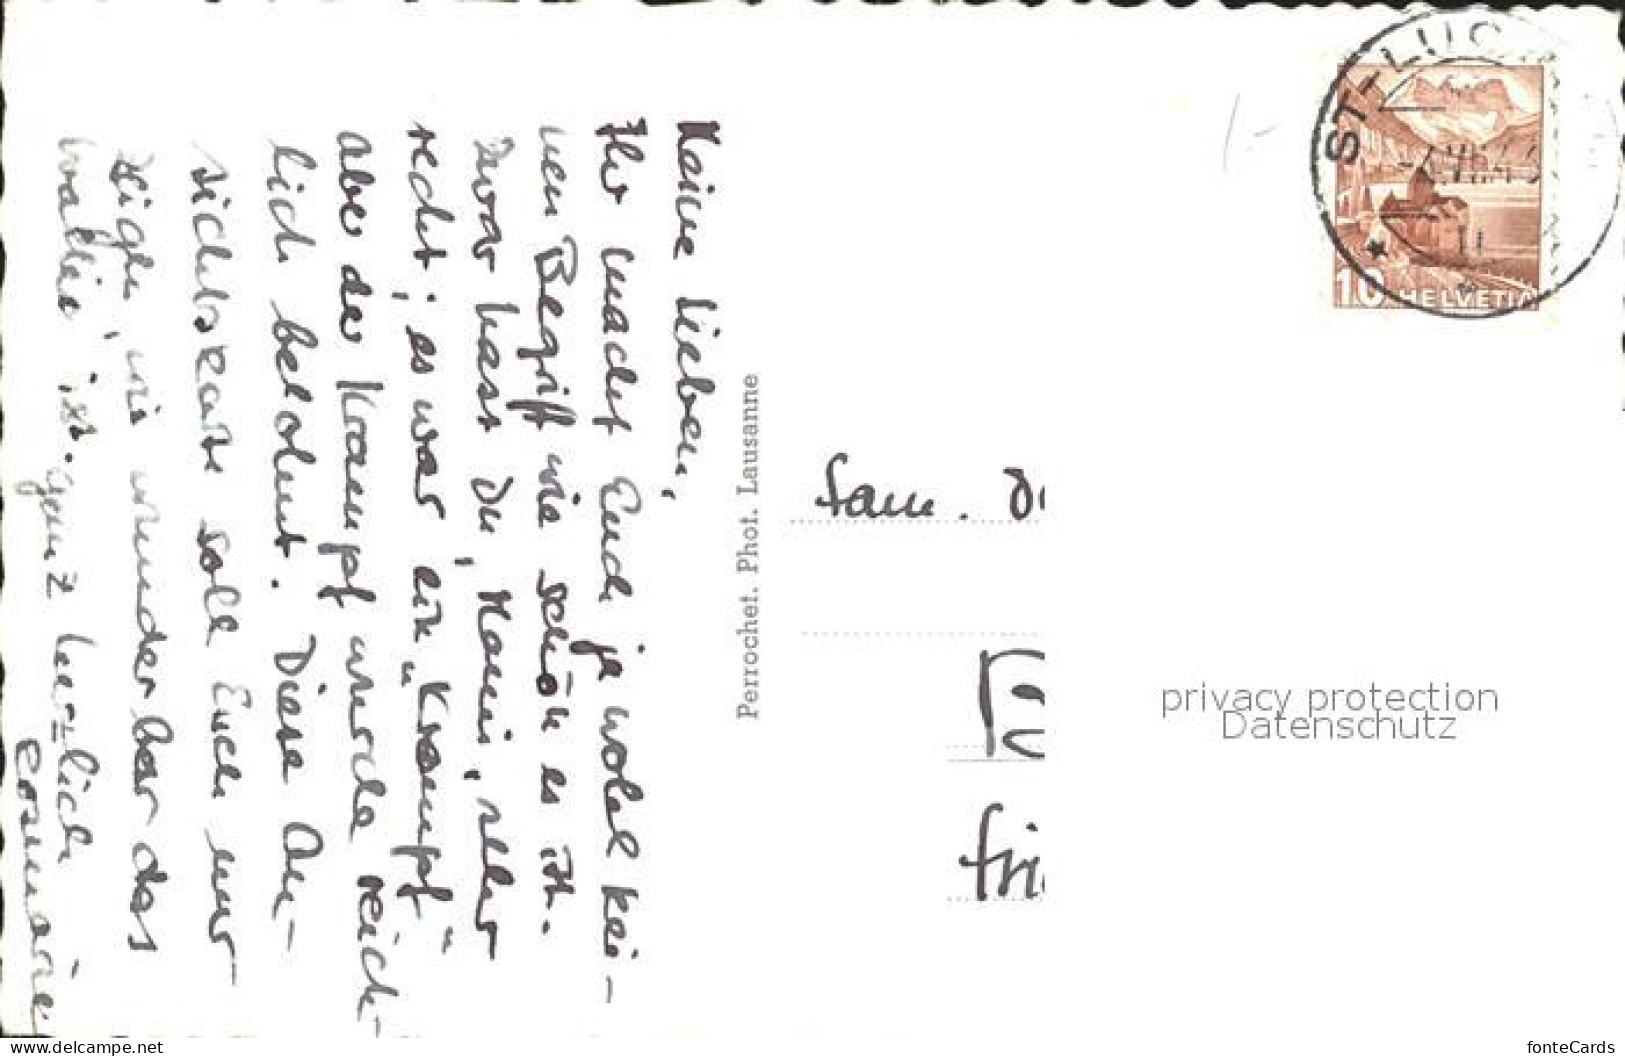 Meine Lieben,
Ihr macht Euch ja wohl kei-
nen Begriff wie schön es ist.
Zwar hast Du, Mami, sehr
recht; es war ein „Krampf"
aber der Krampf wurde reich-
lich belohnt. Diese An-
sichtskarte soll Euch nur
zeigen, wie wunderbar das
Wallis ist. Ganz herzlich
Rosmarie
Perrochet. Phot. Lausanne
ST-LUC
VII.4
11
10 HELVETIA
Fam.
privacy protection
Datenschutz
www.delcampe.net
fonteCards